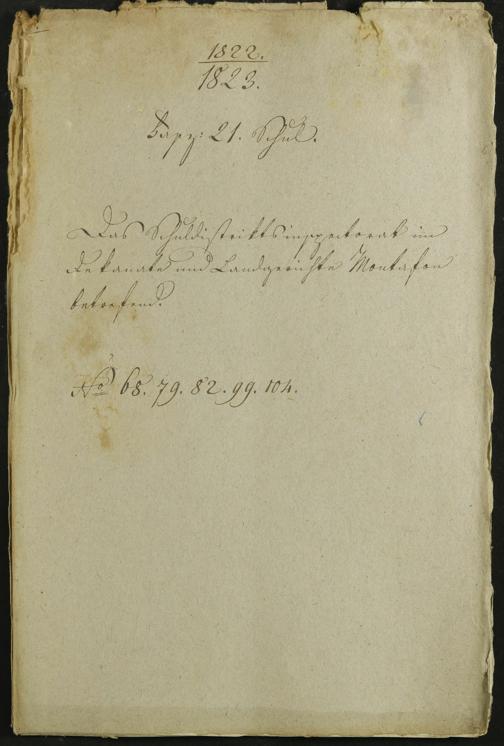 1822.
1823.
21. Schul.
Das Schuldistriktsinspectorat im
Dekanate und Landgerichte Montafon
betrefend.
No 68. 79. 82. 99. 104.